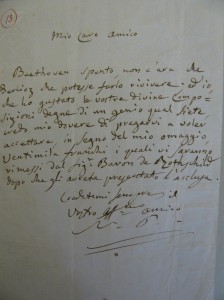 13
Mio Caro Amico
Beethoven spento, non c'era che
Berlioz che potesse farlo rivivere. Ed io,
che ho gustato le vostre divine Compo-
sizioni degne di un genio qual siete
credo mio dovere di pregarvi a voler
accettare in segno del mio omaggio
Ventimila franchi i quali vi saranno
rimessi dal Sigr Baron de Rothschild
dopo che gli avrete presentato l'acclusa.
Credetemi sempre il
Vostro affmo amico